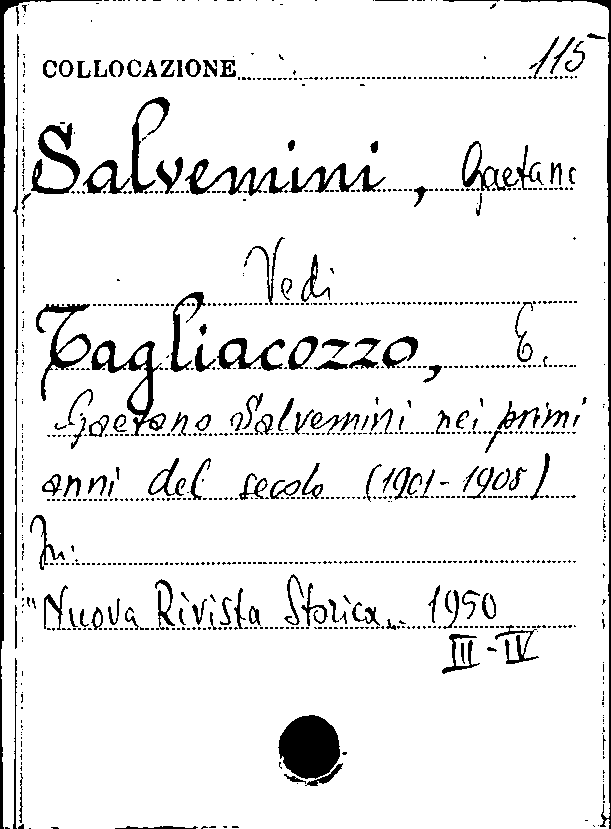 COLLOCAZIONE 115
Salvemini, Gaetano
Vedi
Tagliacozzo, E.
Gaetano Salvemini nei primi
anni del secolo (1901-1908)
In:
"Nuova Rivista Storica" 1950
III-IV